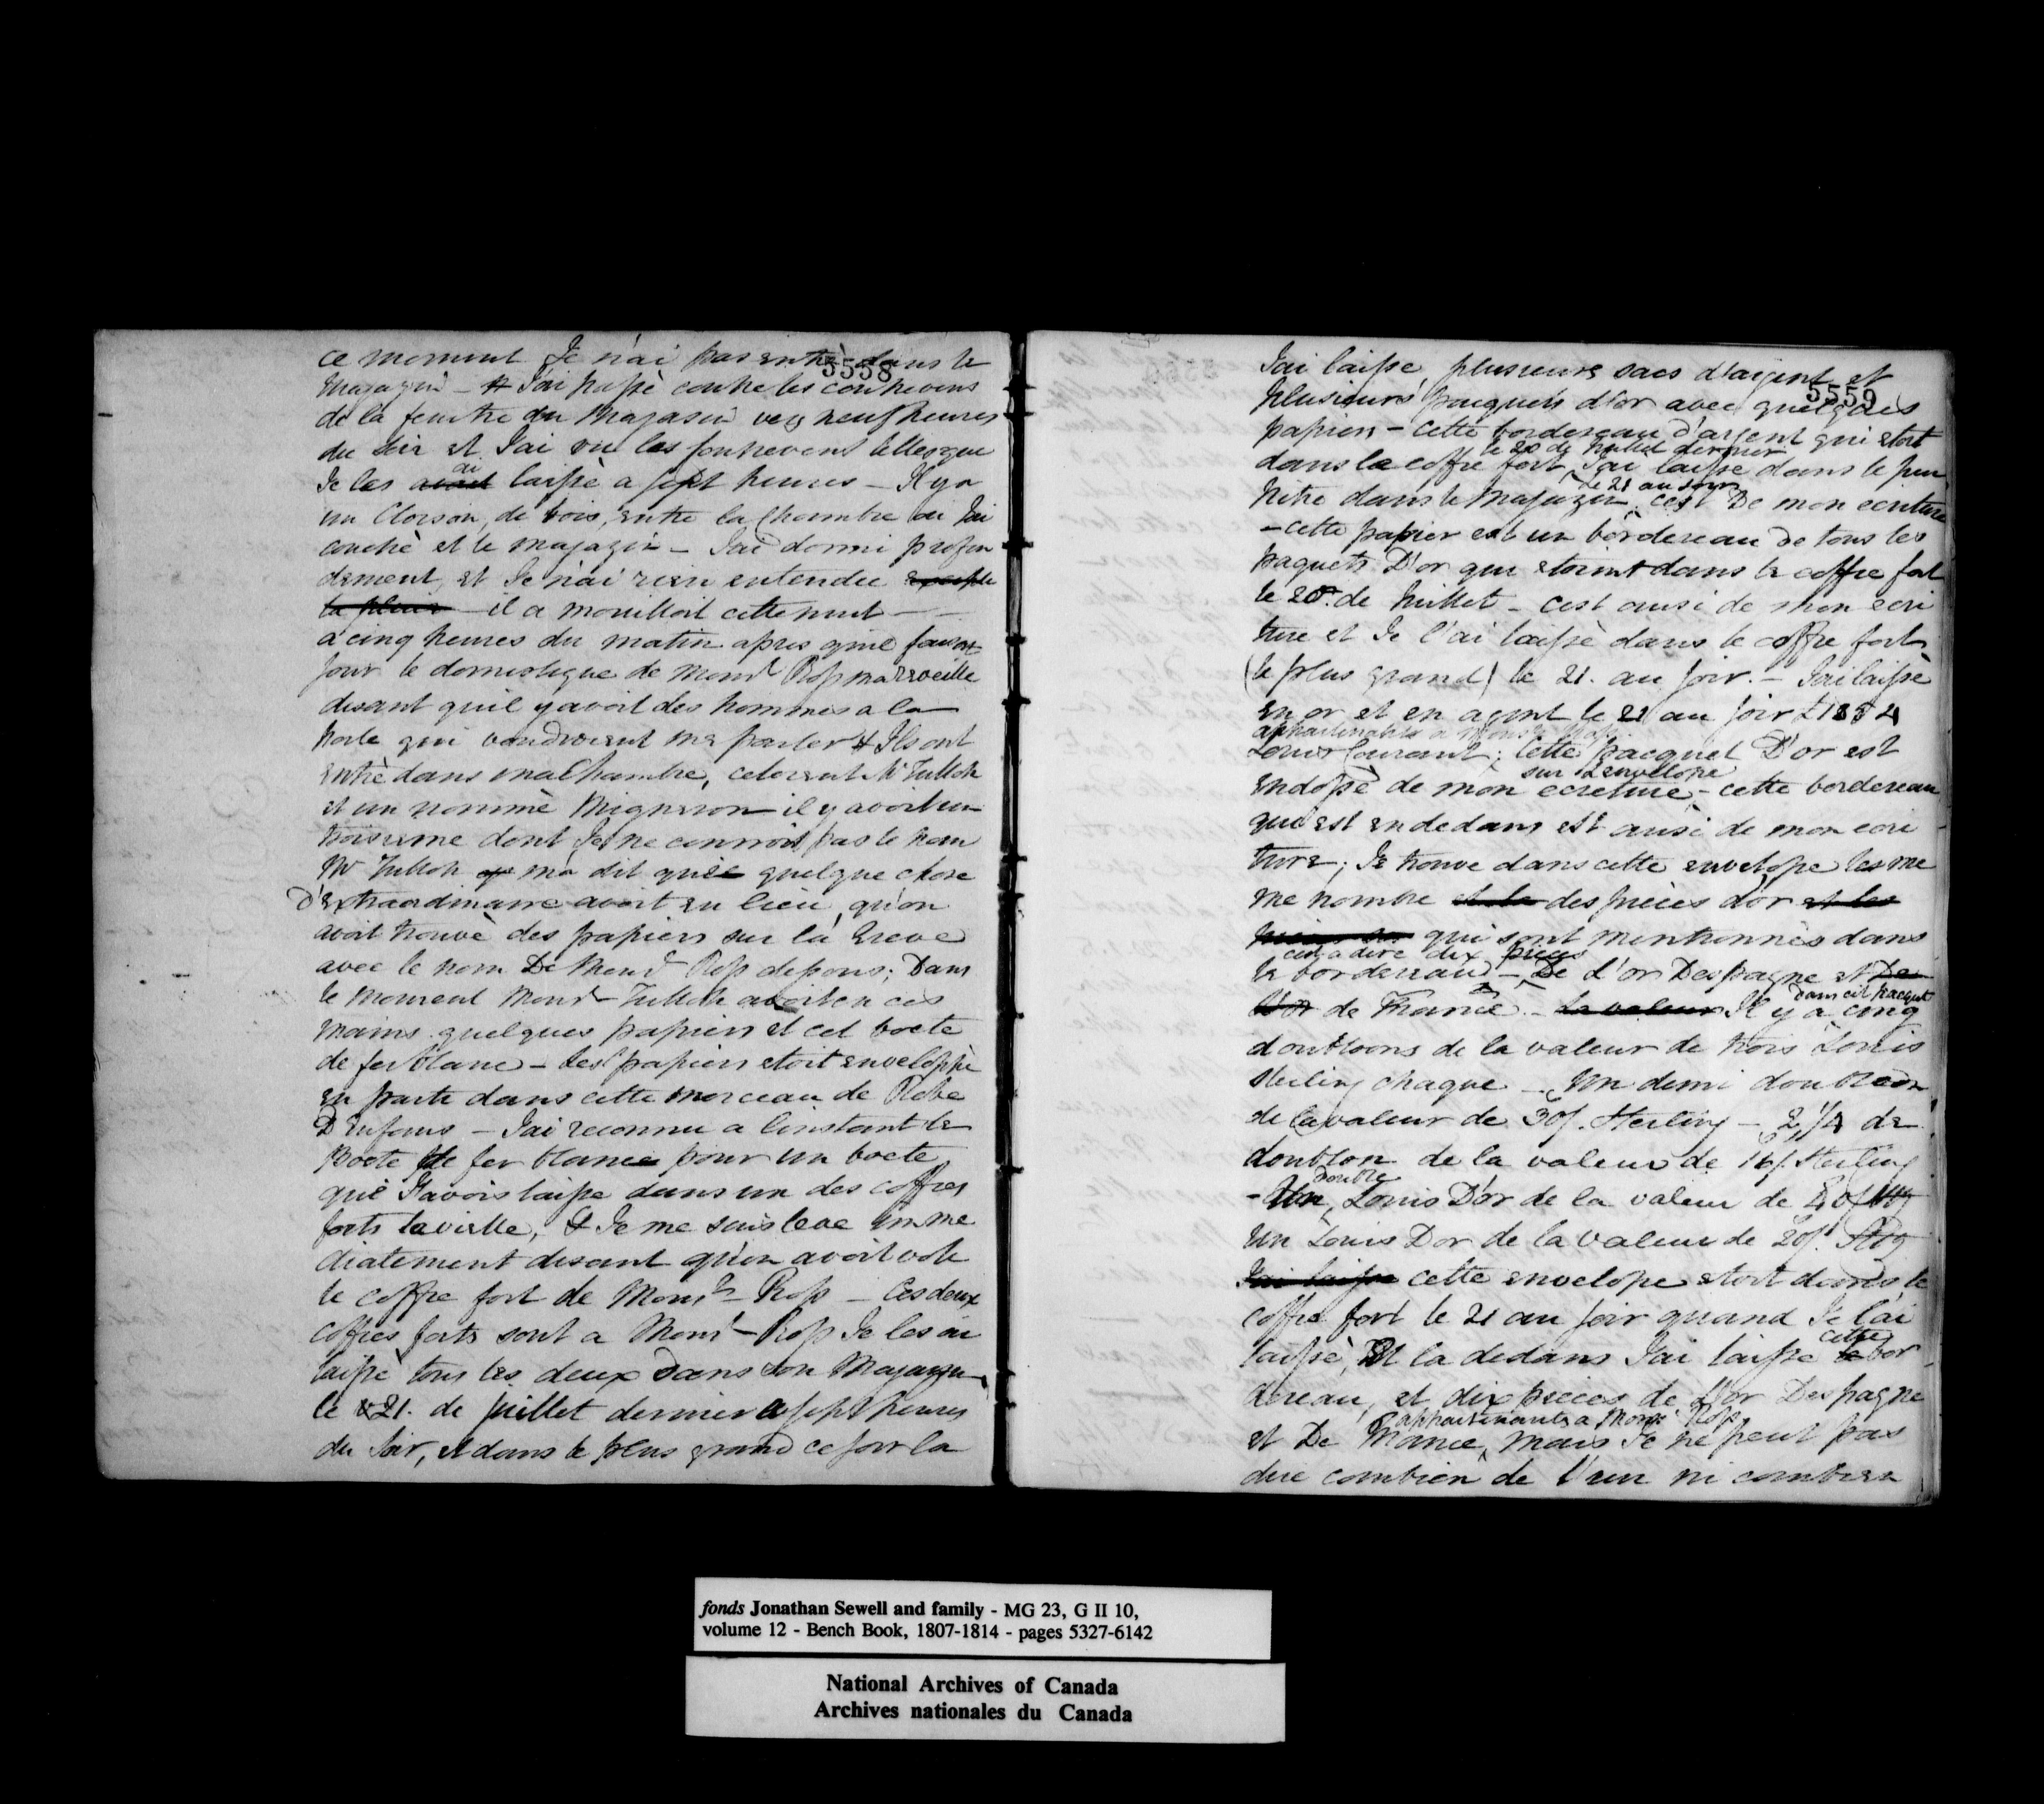 5558
ce moment Je n'ai pas entré dans le
magazin - & J'ai passé contre les contrevens
de la fenetre du Magasin vers neuf heures
du soir et J'ai vu les contrevens telles que
Je les avait ai laissé a sept heures - Il y a
un Cloison, de bois, entre la Chambre ou J'ai
couché et le magazin - J'ai dormi profon
dement, et Je n'ai rien entendu
la pluie - il a mouilloit cette nuit -
a cinq heures du matin apres qu'il faisoit
jour le domestique de Monsr Ross m'a reveillé
disant qu'il y avoit des hommes a la
porte qui voudroient me parler & Ils ont
entré dans ma Chambre, cetoient Mr Tulloh
et un nommé Migneron il y avoit un
troisieme dont Je ne connoit pas le nom
Mr Tulloh m'a dit que quelque chose
D'extraordinaire avoit eu lieu, qu'on
avoit trouvé des papiers sur la Greve
avec le nom De Monsr Ross dessous; Dans
le moment Monsr Tulloh avoit en ces
mains quelques papiers et cet boete
de fer blanc - Les papiers etoit enveloppé
en parti dans cette morceau de Robe
D'enfans - J'ai reconnu a l'instant le
Boete de fer blanc pour un boete
que J'avois laissé dans un des coffres
forts la vielle, & Je me suis levé imme
diatement disant qu'on avoit volé
le coffre fort de Monsr Ross - Ces deux
coffres forts sont a Monsr Ross Je les ai
laissé tous les deux dans son Magazin
le 21. de Juillet dernier a sept heures
du soir, et dans le plus grand ce soir la
5559
J'ai laissé plusieurs sacs d'argent et
plusieurs pacquets d'or avec quelques
papiers - cette bordereau d'argent qui etoit
le 20 de Juillet dernier
dans le coffre fort, J'ai laissé dans le pu
le 21 au soir
pitre dans le Magazin, c'est De mon ecriture
- cette papier est un bordereau de tous les
paquets D'or qui etoient dans le coffre fort
le 20. de Juillet - c'est aussi de mon ecri
ture et Je l'ai laissé dans le coffre fort
(le plus grand) le 21. au soir. - J'ai laissé
en or et en argent le 21 au soir £1854
appartenants a Monsr Ross
Louis Courant; Cette pacquet D'or est
sur l'envelope
endossé de mon ecreture - cette bordereau
qui est en dedans est aussi de mon ecri
ture; Je trouve dans cette envelope les me
me nombre et le des pieces d'or et les
qui sont mentionnés dans
c'est a dire dix pieces
le bordereau - De l'or Despagne et De
l'or de France - la valeur Il y a dans cet pacquet cinq
doubloons de la valeur de trois Louis
sterling chaque - Un demi doubloon
de la valeur de 30/. Sterling - 2 1/4 de
doublon de la valeur de 16/. Sterling
double
- Un, Louis D'or de la valeur de 40/ Stg
Un Louis Dor de la valeur de 20/. Stg
J'ai laissé cette envelope etoit dans le
coffre fort le 21 au soir quand Je l'ai
cette
laissé, Et la dedans J'ai laissé le bor
dereau, et dix pieces de L'or Despagne
appartenants a Monsr Ross
et De France, mais Je ne peut pas
dire combien de l'un ni combien
fonds Jonathan Sewell and family - MG 23, G II 10,
volume 12 - Bench Book, 1807-1814 - pages 5327-6142
National Archives of Canada
Archives nationales du Canada